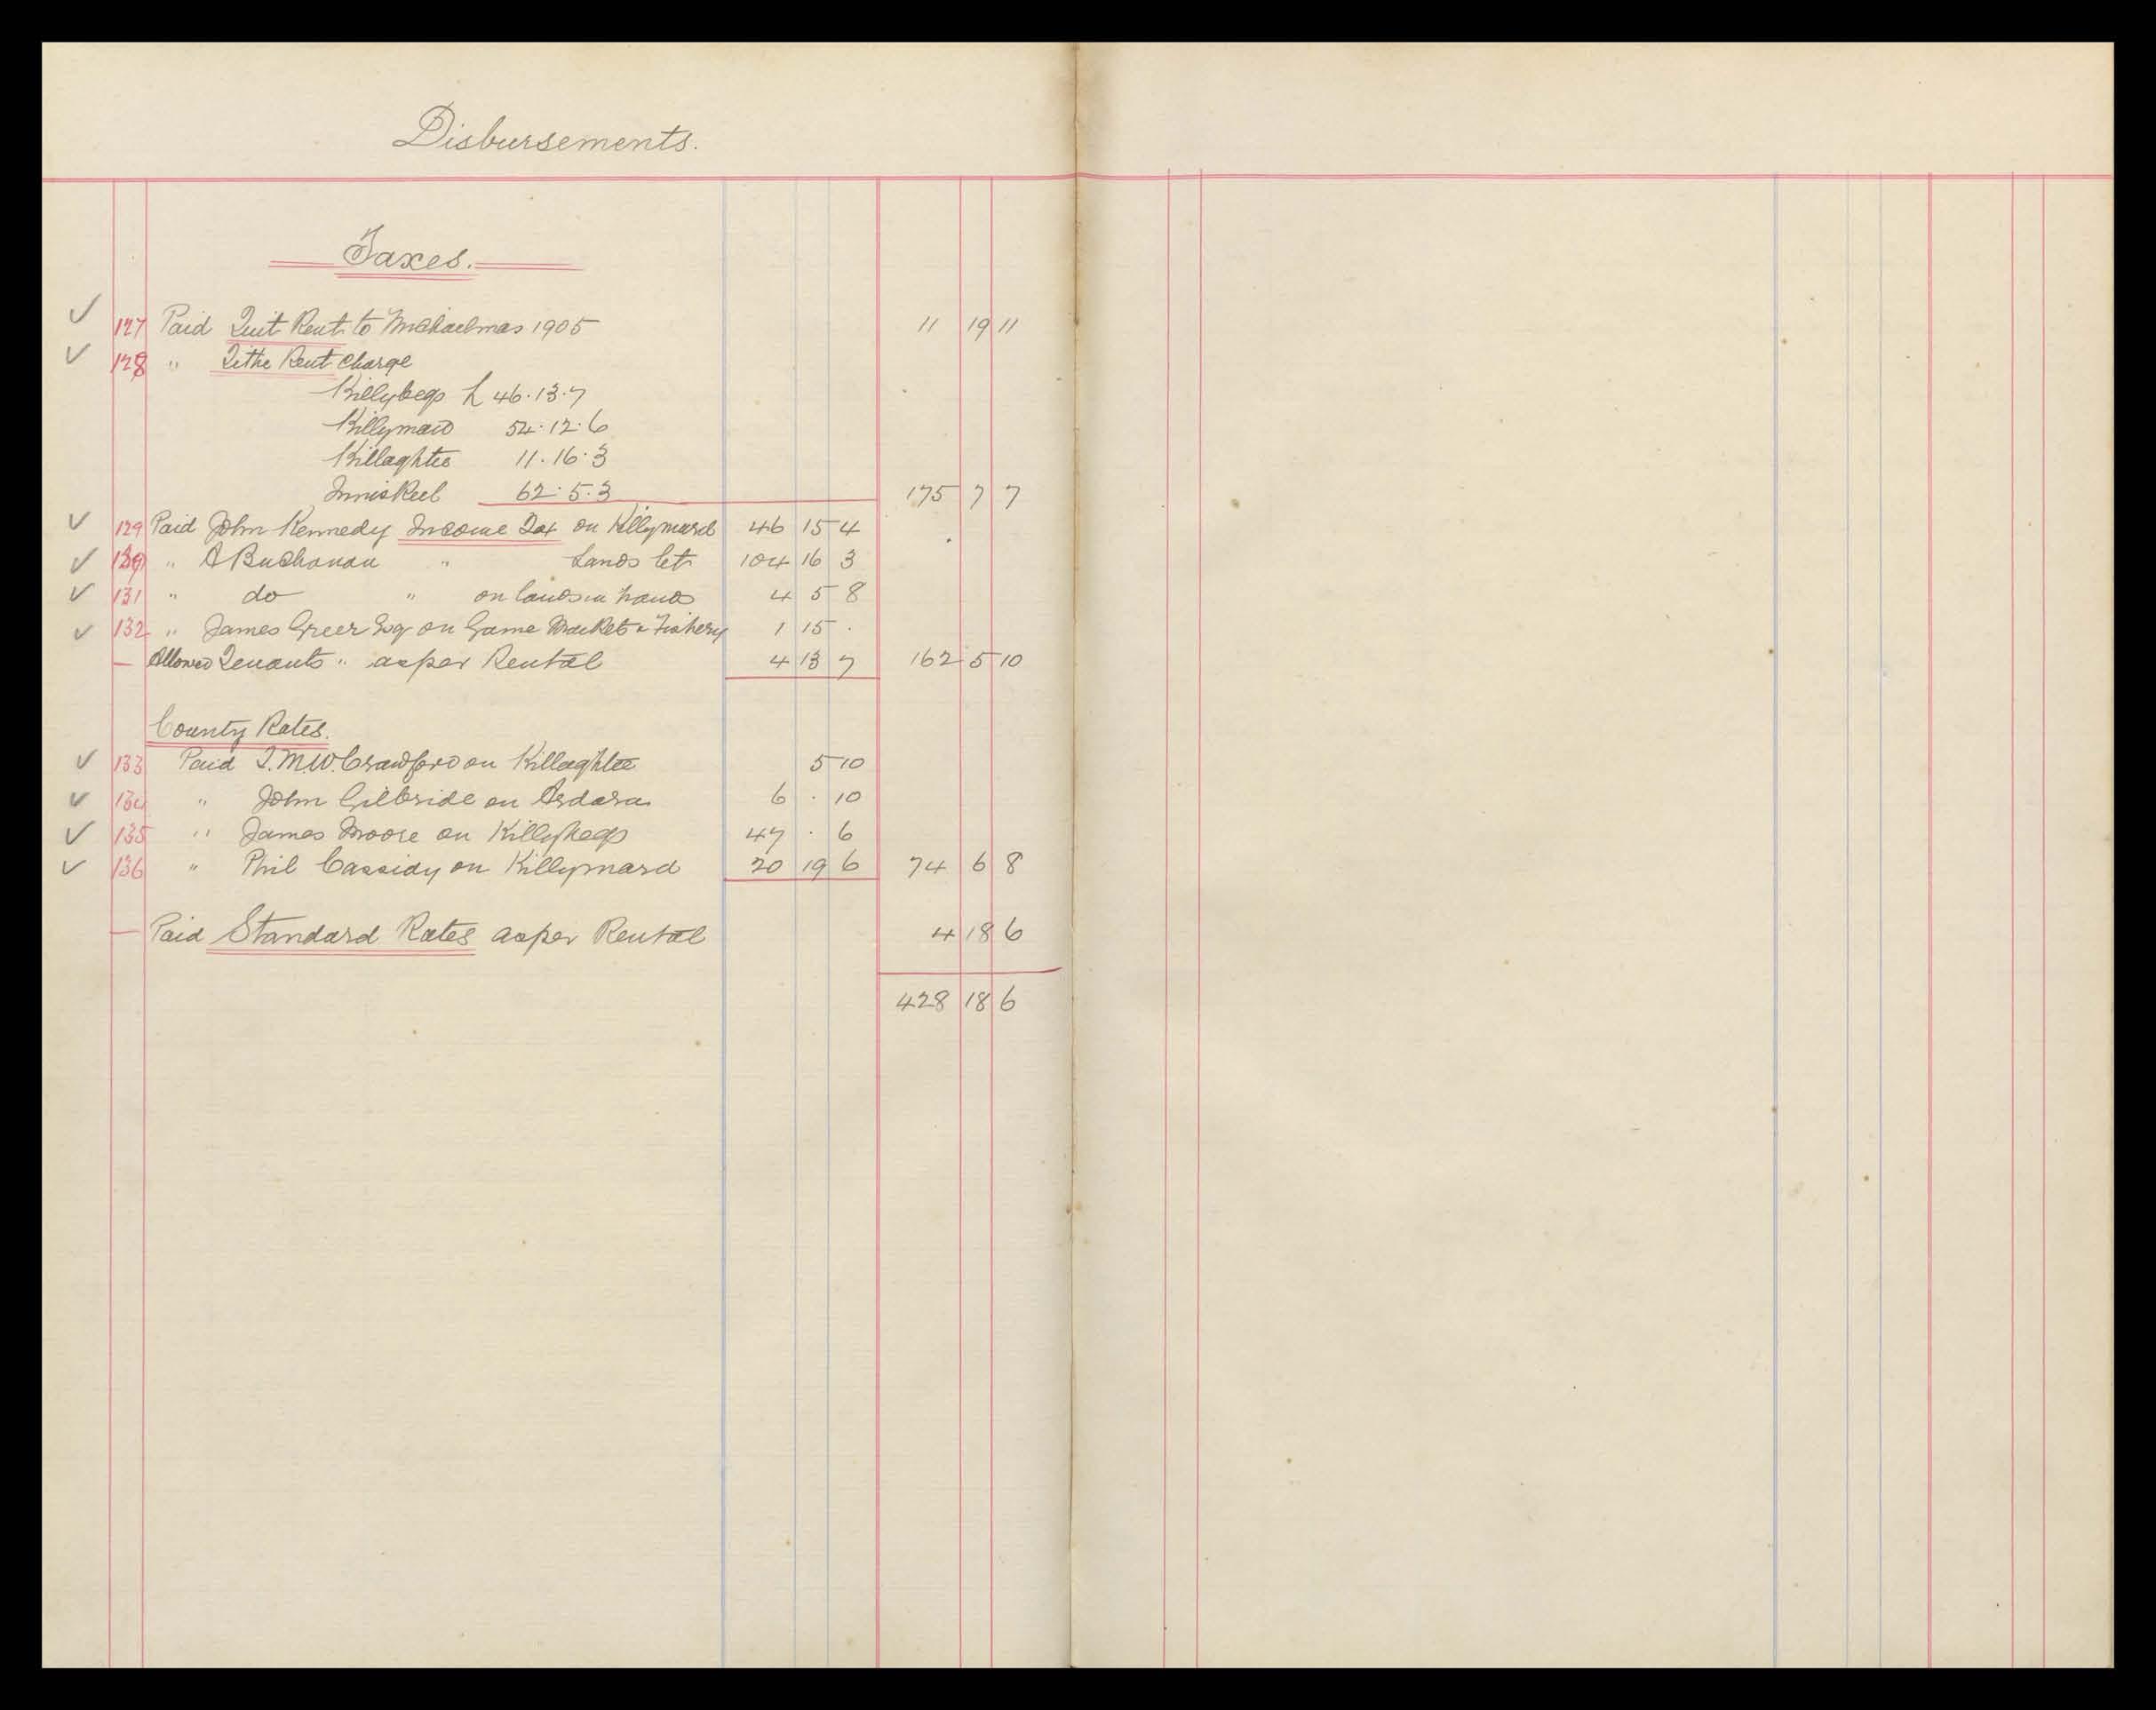 Disbursements.
Taxes.
✓ 127 Paid Quit Rent to Michaelmas 1905 11 19 11
✓ 128 " Tithe Rent Charge
Killybegs £ 46.13.7
Killymard 54.12.6
Killaghtee 11.16.3
Inniskeel 62.5.3 175 7 7
✓ 129 Paid John Kennedy Income Tax on Killymard 46 15 4
✓ 130 " A Buchanan " Lands let 104 16 3
✓ 131 " do " on lands in hands 4 5 8
✓ 132 " James Greer Esq on Game Markets & Fishery 1 15 .
— Allowed Tenants " as per Rental 4 13 7 162 5 10
County Rates.
✓ 133 Paid T.M.W. Crawford on Killaghtee 5 10
✓ 134 " John Gilbride on Ardara 6 . 10
✓ 135 " James Moore on Killybegs 47 . 6
✓ 136 " Phil Cassidy on Killymard 20 19 6 74 6 8
— Paid Standard Rates as per Rental 4 18 6
428 18 6